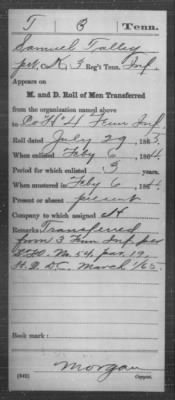 T 3 Tenn.
Samuel Talley
pvt. K, 3 Reg't Tenn. Inf.
Appears on
M. and D. Roll of Men Transferred
from the organization named above
to Co. H 4 Tenn Inf
Roll dated July 29, 1865.
When enlisted Feby 6, 1864.
Period for which enlisted 3 years.
When mustered in Feby 6, 1864.
Present or absent present
Company to which assigned H
Remarks: Transferred
from 3 Tenn Inf per
No. 54 par. 19,
March /65.
Book mark:
Morgan
(342) Copyist.